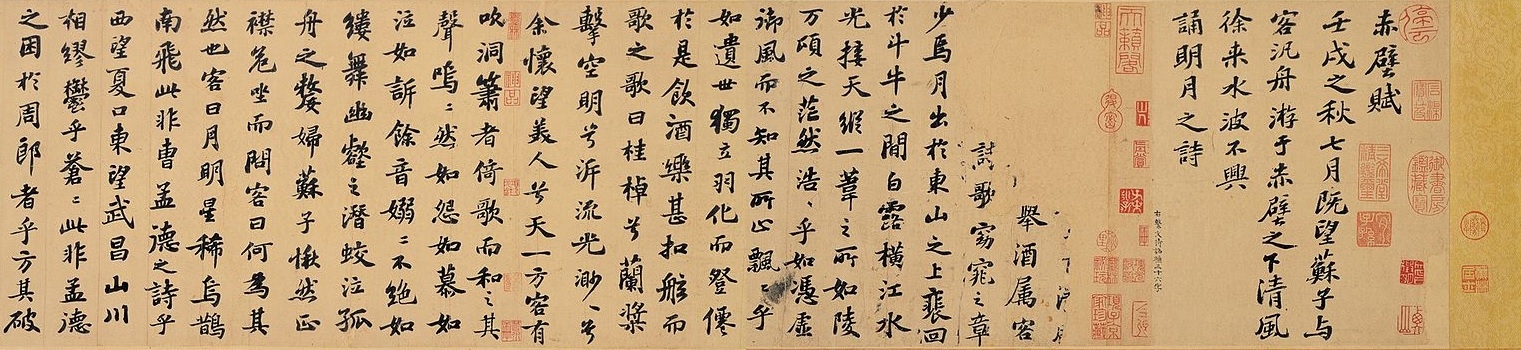 赤壁賦
壬戌之秋七月既望蘇子与
客汎舟游于赤壁之下清風
徐来水波不興
誦明月之詩
天籟閣
舉酒属客
詩歌窈窕之章
少焉月出於東山之上裴回
於斗牛之間白露横江水
光接天縱一葦之所如陵
万頃之茫然浩〻乎如憑虚
御風而不知其所止飄〻乎
如遺世獨立羽化而登僊
於是飲酒樂甚扣舷而
歌之歌曰桂棹兮蘭槳
擊空明兮泝流光渺〻兮
余懷望美人兮天一方客有
吹洞簫者倚歌而和之其
聲嗚〻然如怨如慕如
泣如訴餘音嫋〻不絶如
縷舞幽壑之潛蛟泣孤
舟之嫠婦蘇子愀然正
襟危坐而問客曰何為其
然也客曰月明星稀烏鵲
南飛此非曹孟德之詩乎
西望夏口東望武昌山川
相繆鬱乎蒼〻此非孟德
之困於周郎者乎方其破